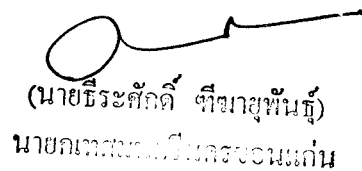 (นายธีระศักดิ์ ฑีฆายุพันธุ์)
นายกเทศมนตรีนครขอนแก่น